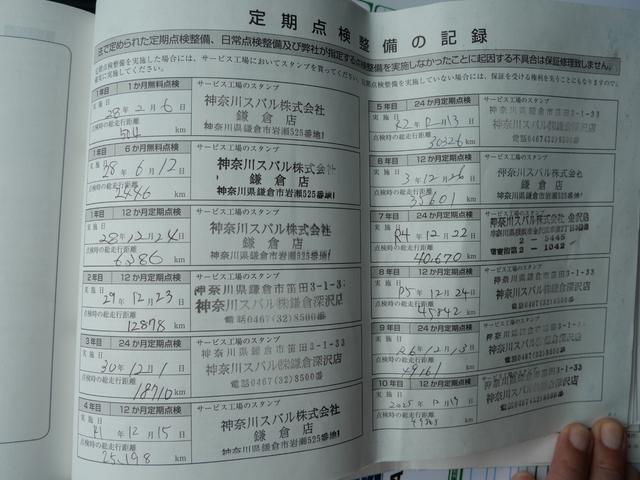 定期点検整備の記録
法で定められた定期点検整備、日常点検整備及び弊社が指定する点検整備を実施しなかったことに起因する不具合は保証修理致しません。
1年目 1か月無料点検
サービス工場のスタンプ
実施日 28年2月6日
神奈川スバル株式会社
鎌倉店
神奈川県鎌倉市岩瀬525番地1
点検時の総走行距離
km
1年目 6か月無料点検
サービス工場のスタンプ
実施日 28年6月12日
神奈川スバル株式会社
鎌倉店
神奈川県鎌倉市岩瀬525番地1
点検時の総走行距離
2446 km
1年目 12か月定期点検
サービス工場のスタンプ
実施日 28年12月24日
神奈川スバル株式会社
鎌倉店
神奈川県鎌倉市岩瀬525番地1
点検時の総走行距離
6386 km
2年目 12か月定期点検
サービス工場のスタンプ
実施日 29年12月23日
神奈川県鎌倉市笛田3-1-33
神奈川スバル㈱鎌倉深沢店
電話0467(32)8500番
点検時の総走行距離
12878 km
3年目 24か月定期点検
サービス工場のスタンプ
実施日 30年12月1日
神奈川県鎌倉市笛田3-1-33
神奈川スバル㈱鎌倉深沢店
電話0467(32)8500番
点検時の総走行距離
18710 km
4年目 12か月定期点検
サービス工場のスタンプ
実施日 R1年12月15日
神奈川スバル株式会社
鎌倉店
神奈川県鎌倉市岩瀬525番地1
点検時の総走行距離
25,198 km
5年目 24か月定期点検
サービス工場のスタンプ
実施日 R2年12月13日
神奈川県鎌倉市笛田3-1-33
神奈川スバル㈱鎌倉深沢店
電話0467(32)8500番
点検時の総走行距離
30326 km
6年目 12か月定期点検
サービス工場のスタンプ
実施日 3年12月26日
神奈川スバル株式会社
鎌倉店
神奈川県鎌倉市岩瀬525番地1
点検時の総走行距離
35601 km
7年目 24か月定期点検
サービス工場のスタンプ
実施日 R4年12月22日
神奈川スバル株式会社
点検時の総走行距離
40,670 km
8年目 12か月定期点検
サービス工場のスタンプ
実施日 R5年12月24日
神奈川県鎌倉市笛田3-1-33
神奈川スバル㈱鎌倉深沢店
点検時の総走行距離
45842 km
9年目 24か月定期点検
サービス工場のスタンプ
実施日 R6年12月13日
神奈川県鎌倉市笛田3-1-33
神奈川スバル㈱鎌倉深沢店
点検時の総走行距離
49161 km
10年目 12か月定期点検
サービス工場のスタンプ
実施日 2025年12月
点検時の総走行距離
km